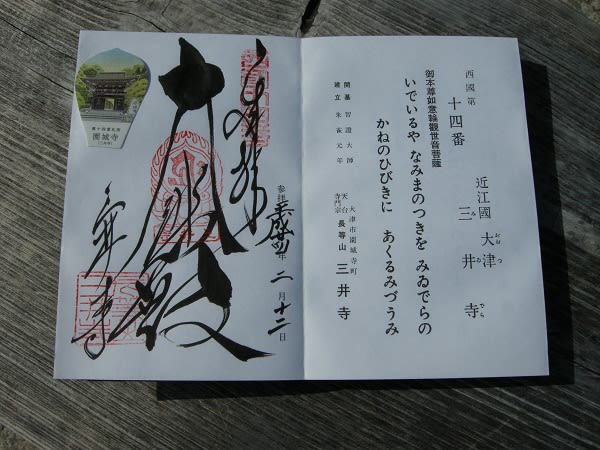 西國第
十四番
近江國
大津
おおつ
三井寺
みゐでら
御本尊如意輪觀世音菩薩
いでいるや なみまのつきを みゐでらの
かねのひびきに あくるみづうみ
開基 智證大師
建立 朱雀元年
大津市園城寺町
天台寺門宗 長等山 三井寺
奉拝
参拝 平成 年 二月十二日
三井寺
第十四番札所
園城寺
(三井寺)